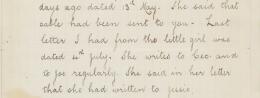 days ago dated 13th May. She said that
cable had been sent to you. Last
letter I had from the little girl was
dated 4th July. She writes to Geo. and
to Joe regularly. She said in her letter
that she had written to Jessie,